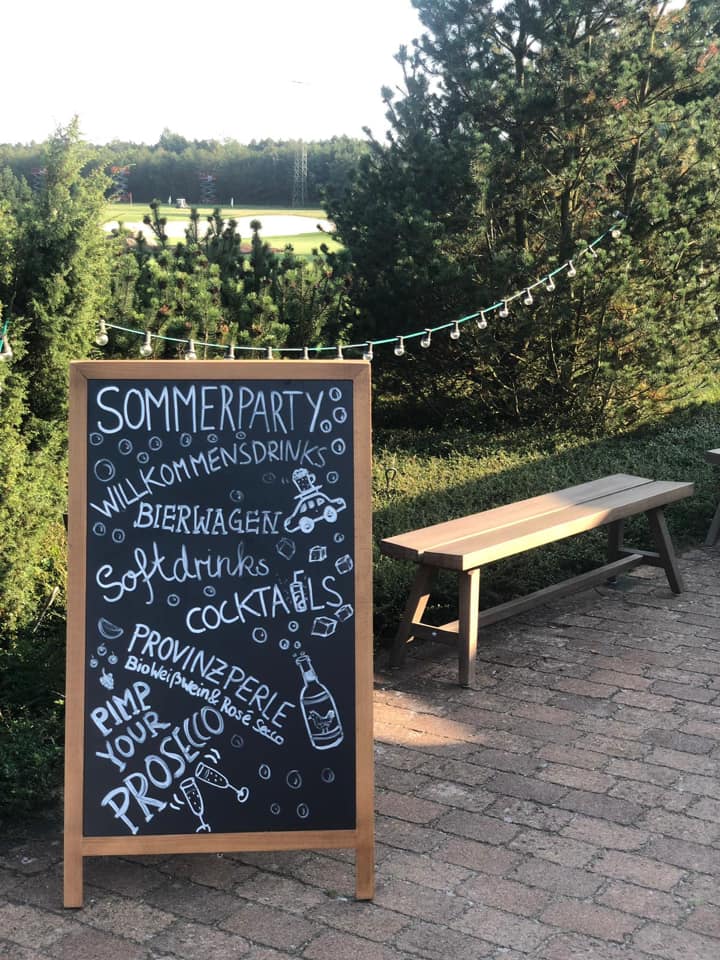 SOMMERPARTY
WILLKOMMENSDRINKS
BIERWAGEN
Softdrinks
COCKTAILS
PROVINZPERLE
Bio Weißwein & Rosé Secco
PIMP
YOUR
PROSECCO